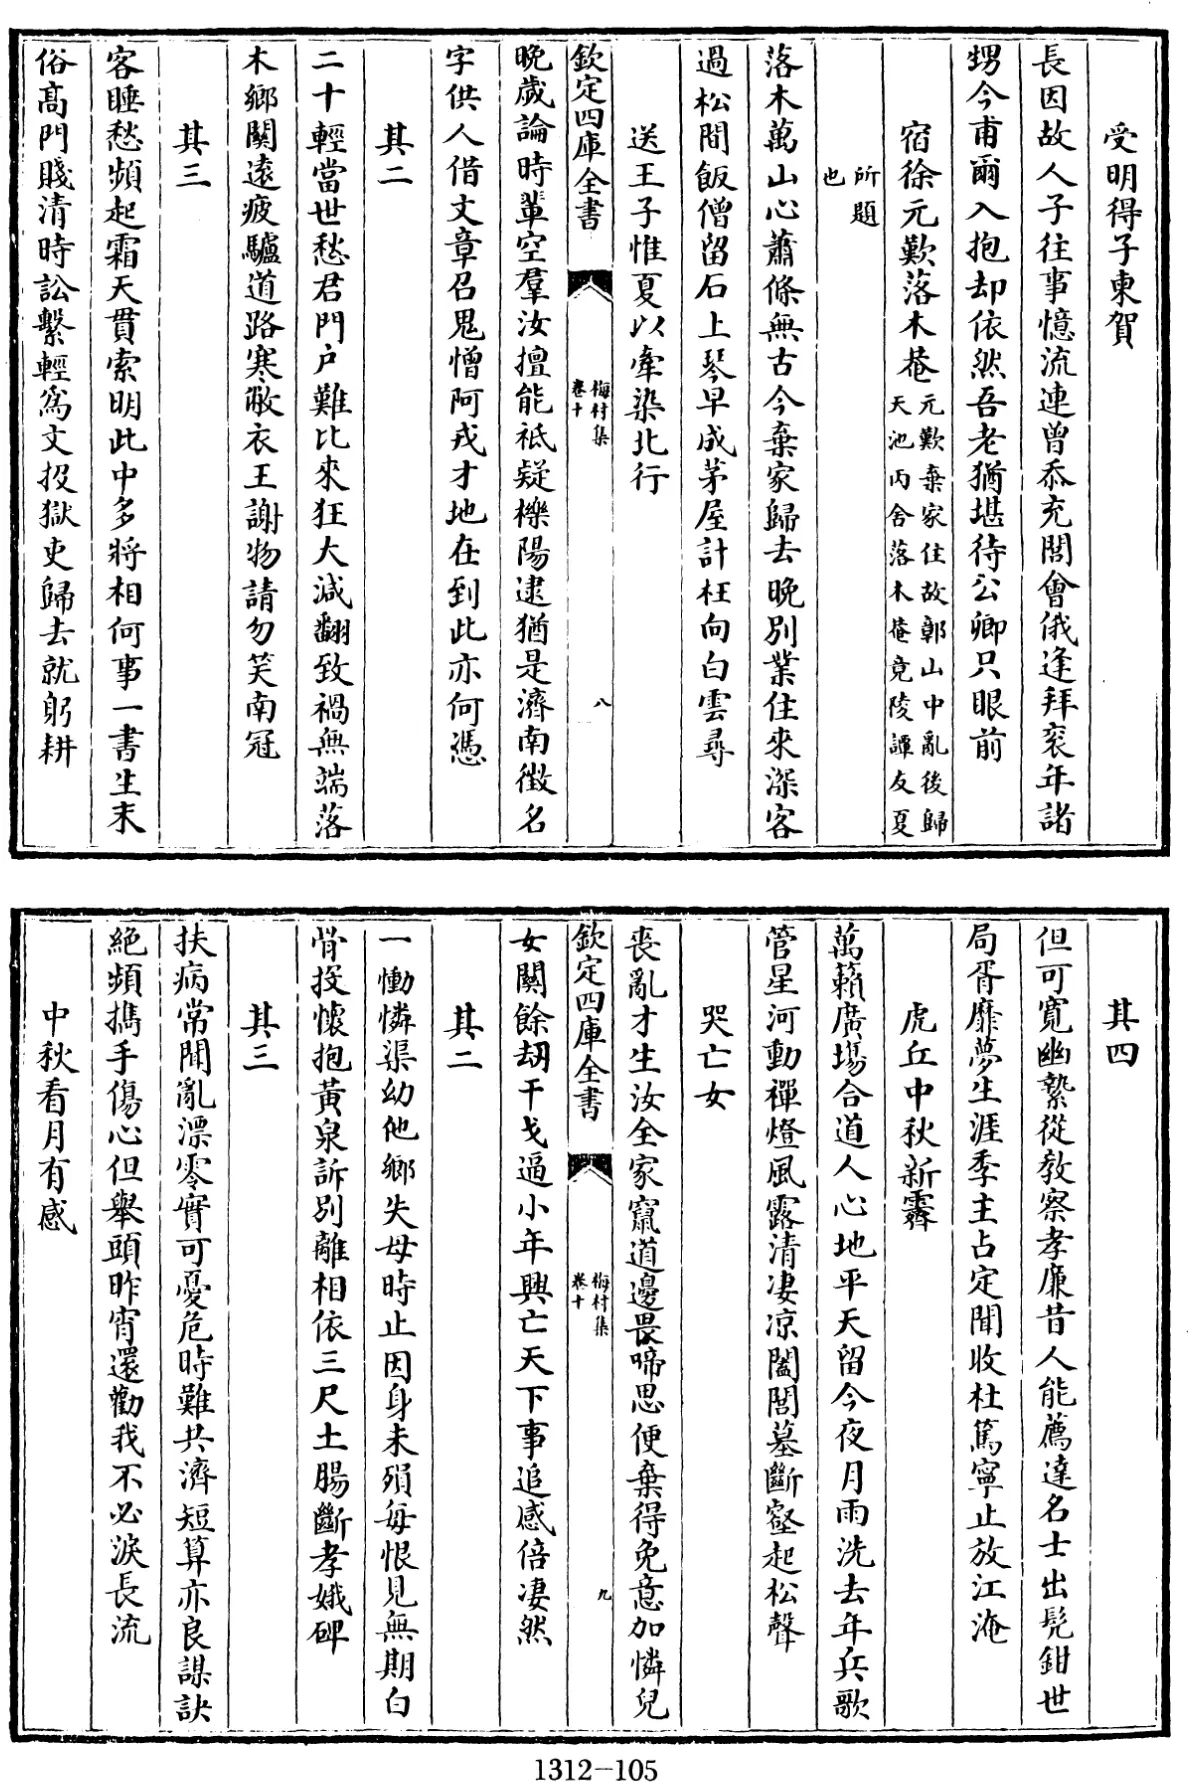 受明得子東賀
長因故人子往事憶流連曾忝充閭會俄逢拜衮年諸
甥今甫爾入抱却依然吾老猶堪待公卿只眼前
宿徐元歎落木菴元歎棄家住故鄣山中亂後歸
天池丙舍落木菴竟陵譚友夏
所題
也
落木萬山心蕭條無古今棄家歸去晚别業住來深客
過松間飯僧留石上琴早成茅屋計枉向白雲尋
送王子惟夏以牽染北行
欽定四庫全書
梅村集
卷十
八
晚歲論時輩空羣汝擅能祇疑櫟陽逮猶是濟南徵名
字供人借文章召鬼憎阿戎才地在到此亦何憑
其二
二十輕當世愁君門户難比來狂大減翻致禍無端落
木鄉關遠疲驢道路寒敝衣王謝物請勿笑南冠
其三
客睡愁頻起霜天貫索明此中多將相何事一書生末
俗高門賤清時訟繫輕為文投獄吏歸去就躬耕
其四
但可寬幽縶從教察孝廉昔人能薦達名士出髠鉗世
局胥靡夢生涯季主占定聞收杜篤寧止放江淹
虎丘中秋新霽
萬籟廣塲合道人心地平天留今夜月雨洗去年兵歌
管星河動禪燈風露清凄凉闔閭墓斷壑起松聲
哭亡女
喪亂才生汝全家竄道邊畏啼思便棄得免意加憐兒
欽定四庫全書
梅村集
卷十
九
女關餘刼干戈逼小年興亡天下事追感倍凄然
其二
一慟憐渠幼他鄉失母時止因身未殞每恨見無期白
骨投懷抱黃泉訴别離相依三尺土腸斷孝娥碑
其三
扶病常聞亂漂零實可憂危時難共濟短算亦良謀訣
絶頻擕手傷心但舉頭昨宵還勸我不必淚長流
中秋看月有感
1312-105